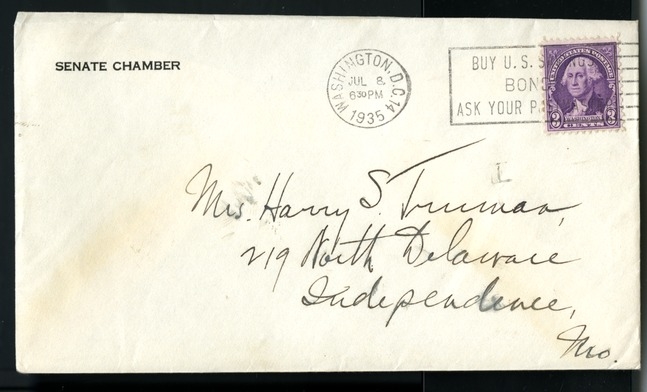 SENATE CHAMBER
WASHINGTON, D.C. 14
JUL 8
6 30 PM
1935
BUY U.S. S
BON
ASK YOUR P
UNITED STATES POSTAGE
WASHINGTON
3 3
Mrs. Harry S. Truman,
219 North Delaware
Independence,
Mo.